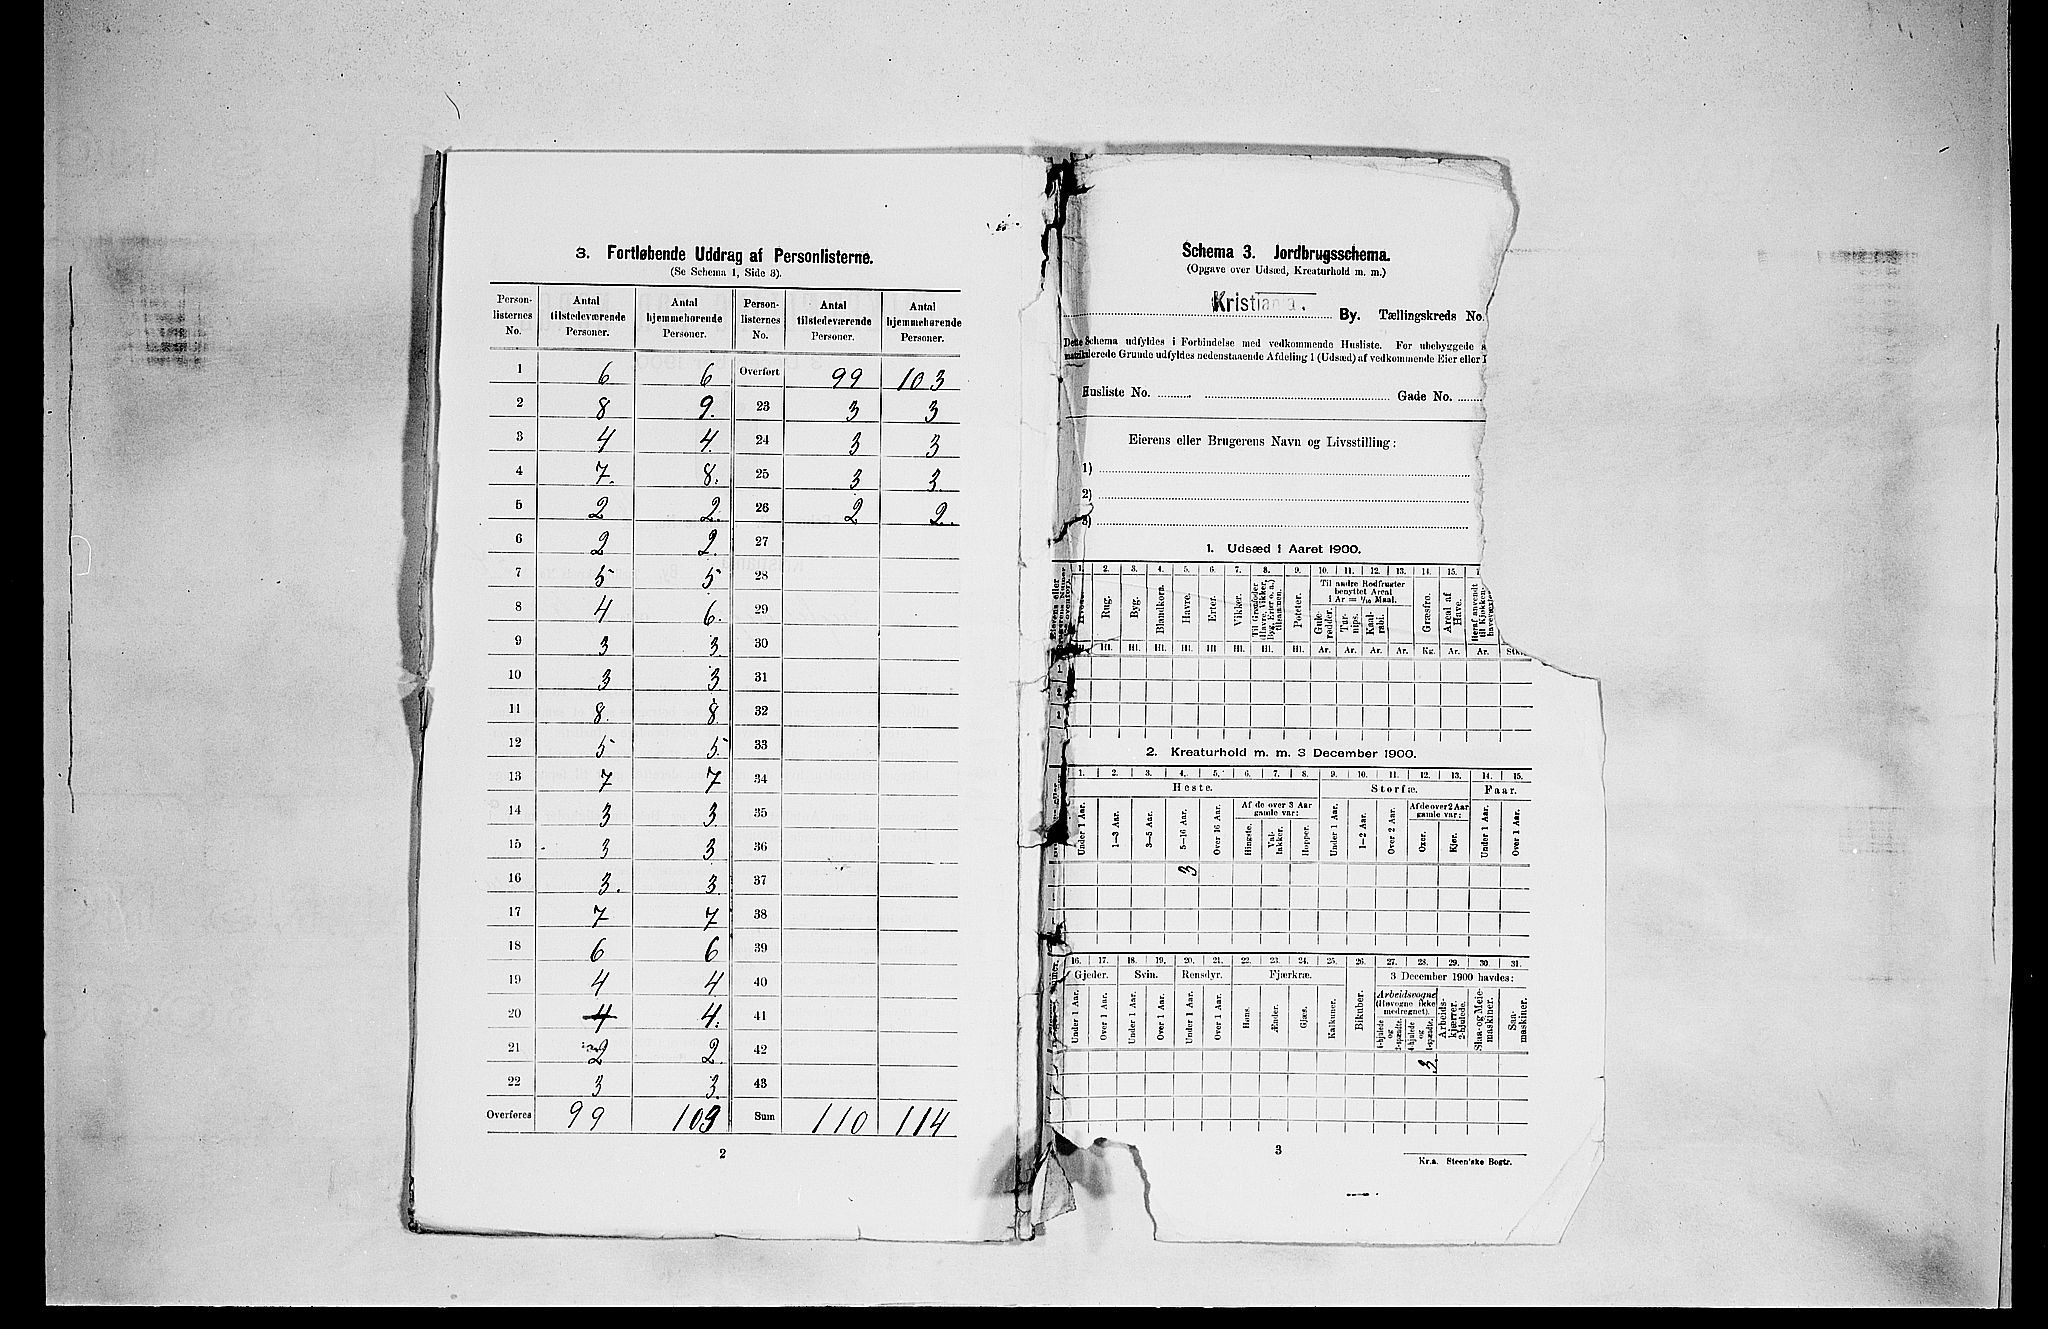 3. Fortløbende Uddrag af Personlisterne.
(Se Schema 1, Side 3).
Person-listernes No. | Antal tilstedeværende Personer. | Antal hjemmehørende Personer. | Person-listernes No. | Antal tilstedeværende Personer. | Antal hjemmehørende Personer.
1 6 6 Overført 99 103
2 8 9. 23 3 3
3 4 4. 24 3 3
4 7. 8. 25 3 3.
5 2 2. 26 2 2.
6 2 2. 27
7 5 5 28
8 4 6. 29
9 3 3. 30
10 3 3. 31
11 8. 8. 32
12 5 5. 33
13 7 7 34
14 3 3 35
15 3 3 36
16 3. 3. 37
17 7 7 38
18 6 6 39
19 4 4 40
20 4 4. 41
21 2 2. 42
22 3 3. 43
Overføres 99 103 Sum 110 114
2
Schema 3. Jordbrugsschema.
(Opgave over Udsæd, Kreaturhold m. m.)
Kristiania. By. Tællingskreds No.
Dette Schema udfyldes i Forbindelse med vedkommende Husliste. For ubebyggede
matrikulerede Grunde udfyldes nedenstaaende Afdeling 1 (Udsæd) af vedkommende Eier eller
Husliste No. Gade No.
Eierens eller Brugerens Navn og Livsstilling:
1)
2)
3)
1. Udsæd i Aaret 1900.
1. 2. 3. 4. 5. 6. 7. 8. 9. 10. 11. 12. 13. 14. 15.
Til andre Rodfrugter benyttet Areal 1 Ar = 1/10 Maal.
Rug. Byg. Blandkorn. Havre. Erter. Vikker. Til Grønfoder (Havre, Vikker, Byg, Erter o. a.) tilsammen. Poteter. Gule-rødder. Tur-nips. Kaal-rabi. Græsfrø. Areal af Have. Heraf anvendt til Kjøkken-havevæxter
Hl. Hl. Hl. Hl. Hl. Hl. Hl. Hl. Hl. Ar. Ar. Ar. Ar. Kg. Ar. Ar. Stk.
2. Kreaturhold m. m. 3 December 1900.
1. 2. 3. 4. 5. 6. 7. 8. 9. 10. 11. 12. 13. 14. 15.
Heste. Storfæ. Faar.
Under 1 Aar. 1—3 Aar. 3—5 Aar. 5—16 Aar. Over 16 Aar. Af de over 3 Aar gamle var: Hingste. Val-lakker. Hopper. Under 1 Aar. 1—2 Aar. Over 2 Aar. Af de over 2 Aar gamle var: Oxer. Kjør. Under 1 Aar. Over 1 Aar.
3
16. 17. 18. 19. 20. 21. 22. 23. 24. 25. 26. 27. 28. 29. 30. 31.
Gjeder. Svin. Rensdyr. Fjærkræ. 3 December 1900 havdes:
Under 1 Aar. Over 1 Aar. Under 1 Aar. Over 1 Aar. Under 1 Aar. Over 1 Aar. Høns. Ænder. Gjæs. Kalkuner. Bikuber. Arbeidsvogne (Høvogne ikke medregnet). 4-hjulede og 2-spændte. 4-hjulede og 1-spændte. Arbeids-kjærrer, 2-hjulede. Slaa- og Meie-maskiner. Saa-maskiner.
3.
3
Kr.a. Steen'ske Bogtr.